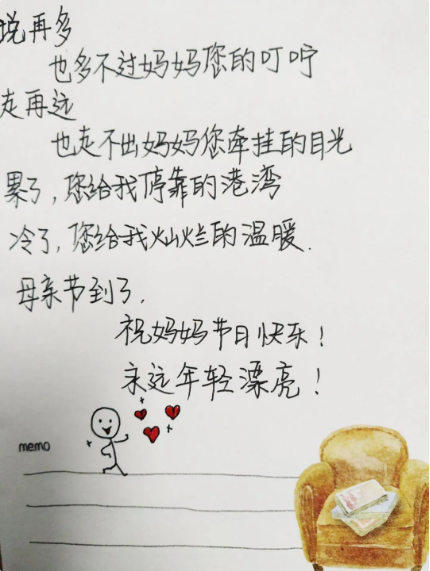 说再多
也多不过妈妈您的叮咛
走再远
也走不出妈妈您牵挂的目光
累了,您给我停靠的港湾
冷了,您给我灿烂的温暖.
母亲节到了,
祝妈妈节日快乐!
永远年轻漂亮!
memo